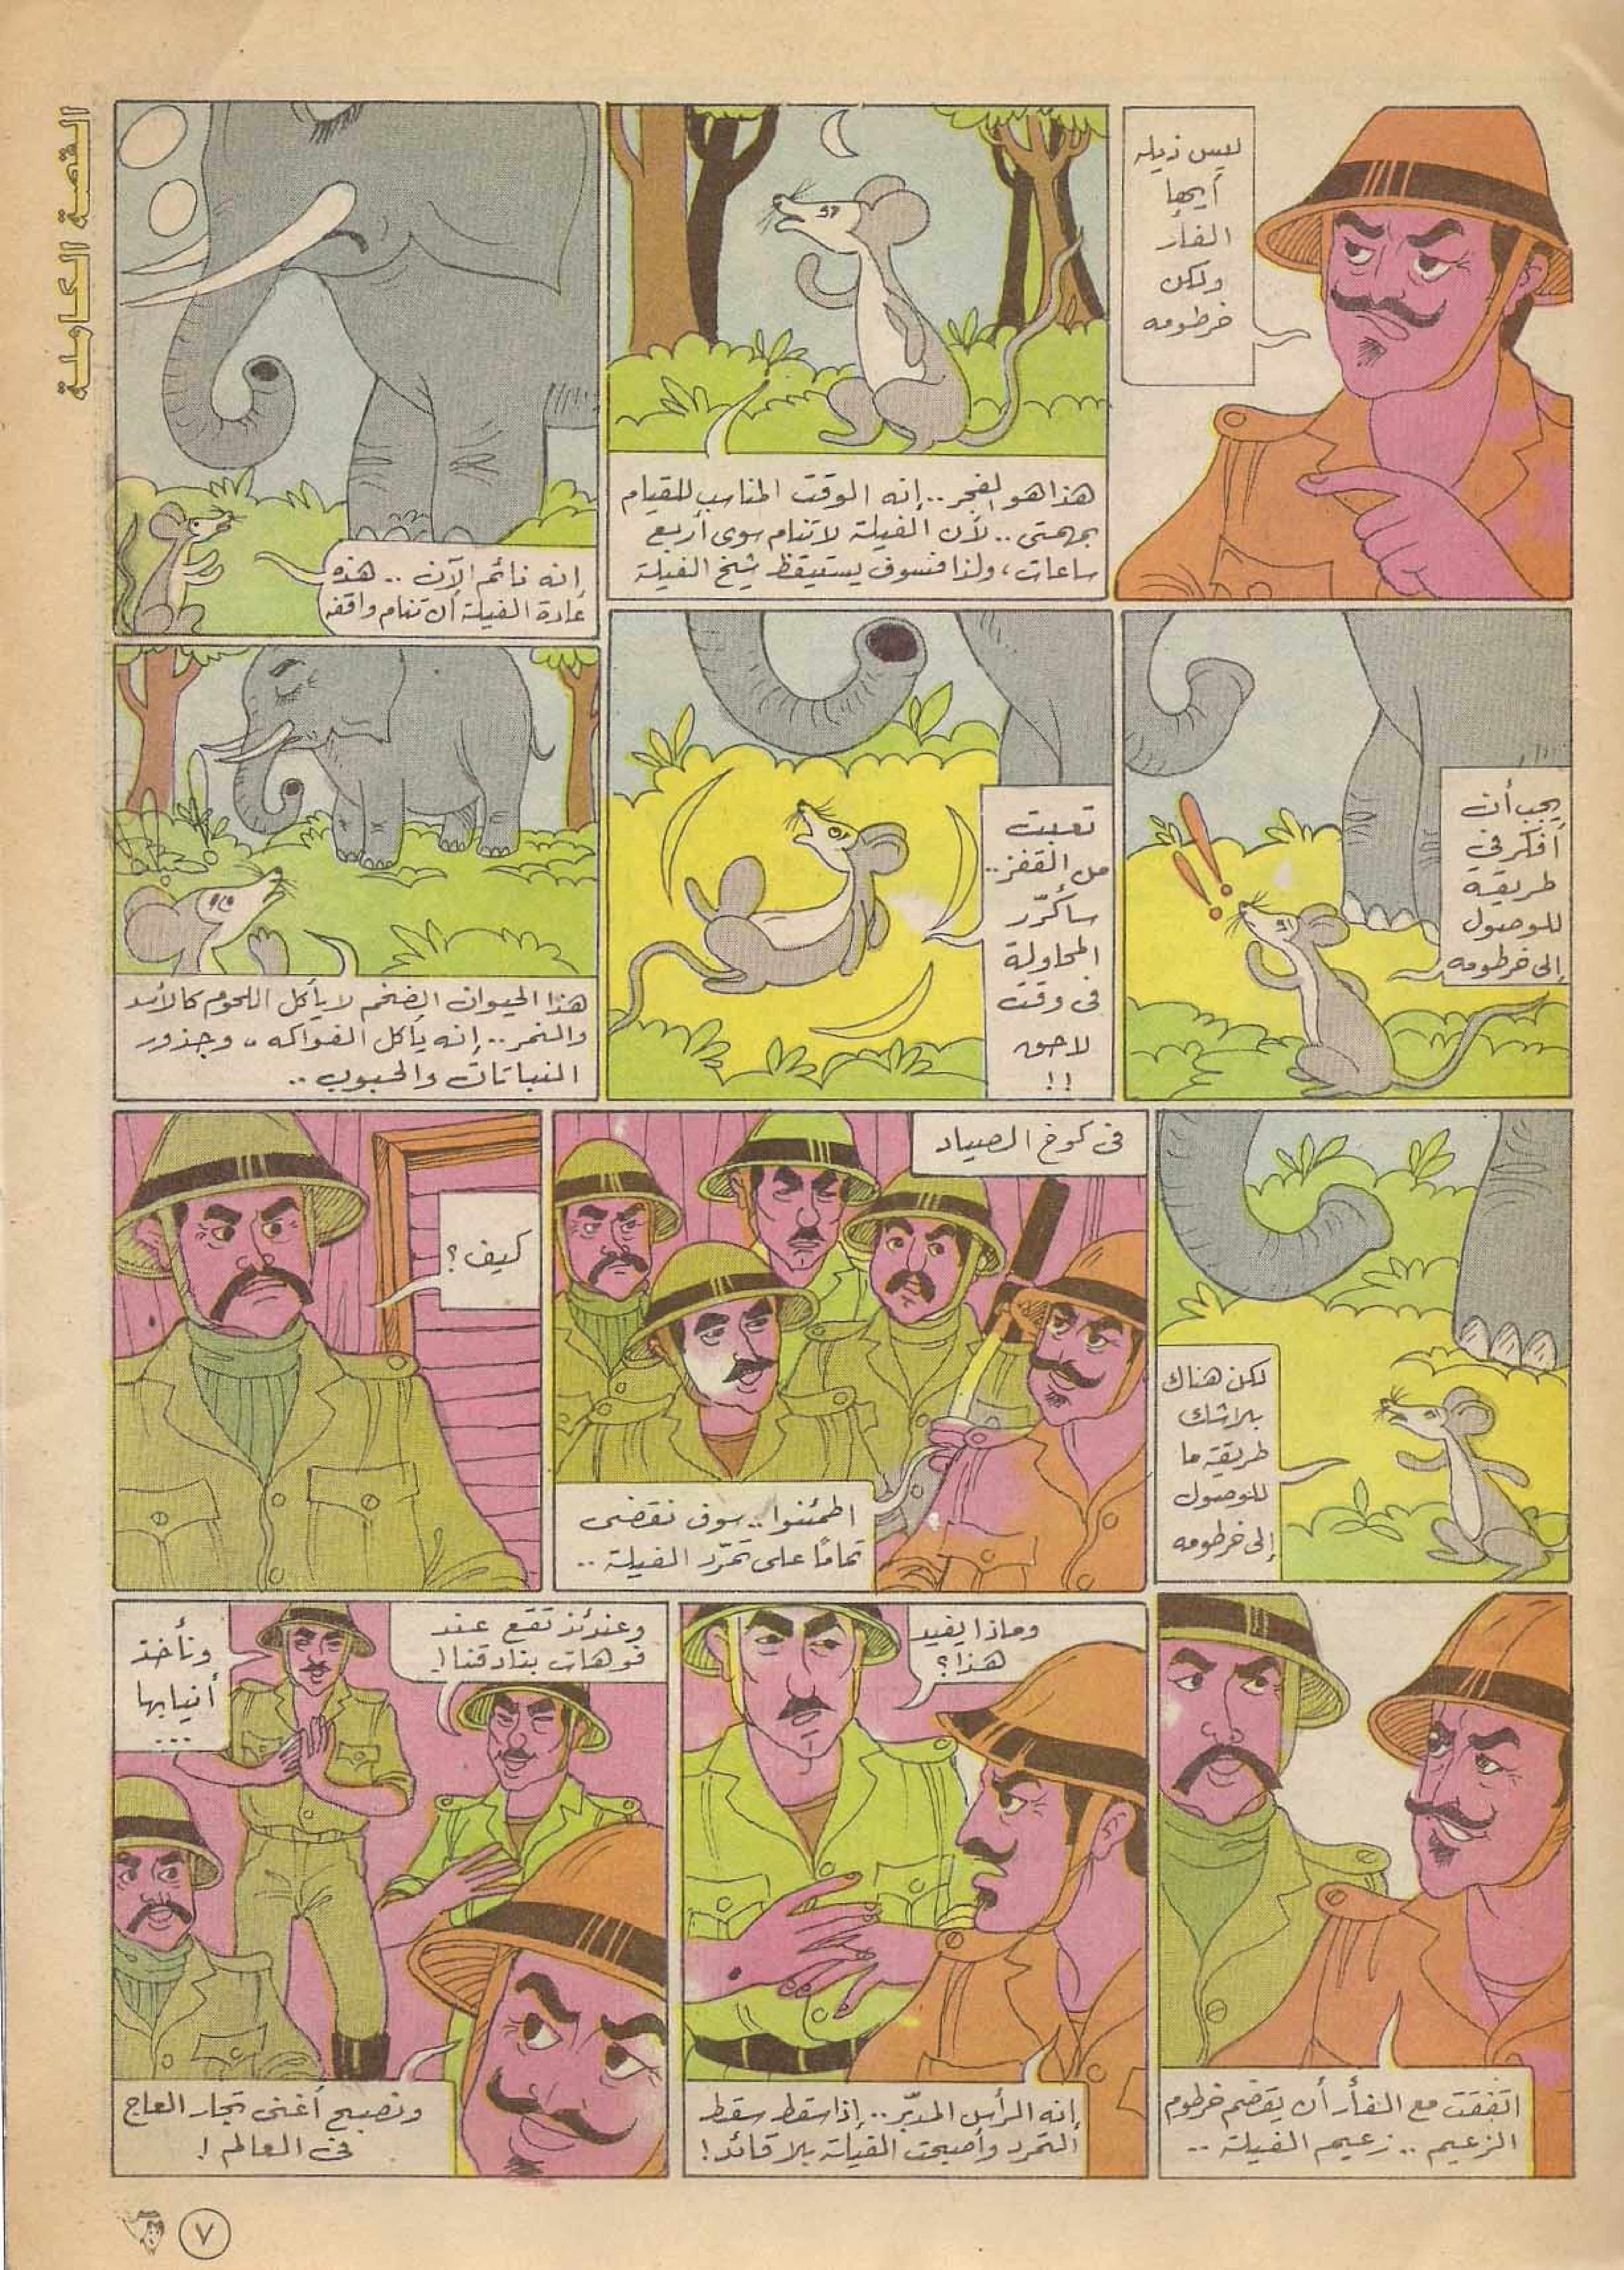 القصة الكاملة
ليس ذيله
أيها
الفأر
ولكن
خرطومه
هذا هو الفجر .. إنه الوقت المناسب للقيام
بمهمتى .. لأن الفيلة لا تنام سوى أربع
ساعات ، ولذا فسوف يستيقظ شيخ الفيلة
إنه نائم الآن .. هذه
عادة الفيلة أن تنام واقفه
يجب أن
أفكر في
طريقة
للوصول
إلى خرطومه
تعبت
من القفز ..
سأكرّر
المحاولة
فى وقت
لاحق
!!
هذا الحيوان الضخم لا يأكل اللحوم كالأسد
والنمر .. إنه يأكل الفواكه ، وجذور
النباتات والحبوب ..
لكن هناك
بلا شك
طريقة ما
للوصول
إلى خرطومه
فى كوخ الصياد
اطمئنوا .. سوف نقضى
تمامًا على تمرّد الفيلة ..
كيف ؟
اتفقت مع الفأر أن يقضم خرطوم
الزعيم .. زعيم الفيلة ..
وماذا يفيد
هذا ؟
إنه الرأس المدبّر .. إذا سقط سقط
التمرد وأصبحت الفيلة بلا قائد !
وعندئذ تقع عند
فوهات بنادقنا !
ونأخذ
أنيابها
...
ونصبح أغنى تجار العاج
فى العالم !
٧